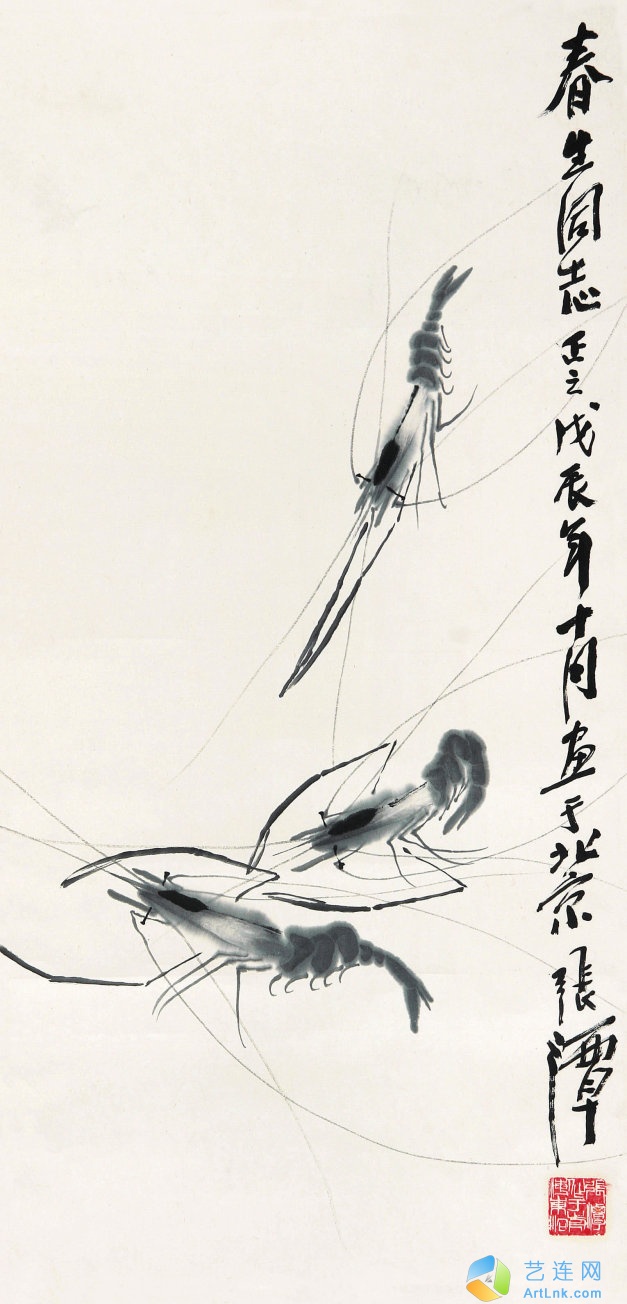 春生同志正之戊辰年十月画于北京張潭
艺连网
ArtLnk.com